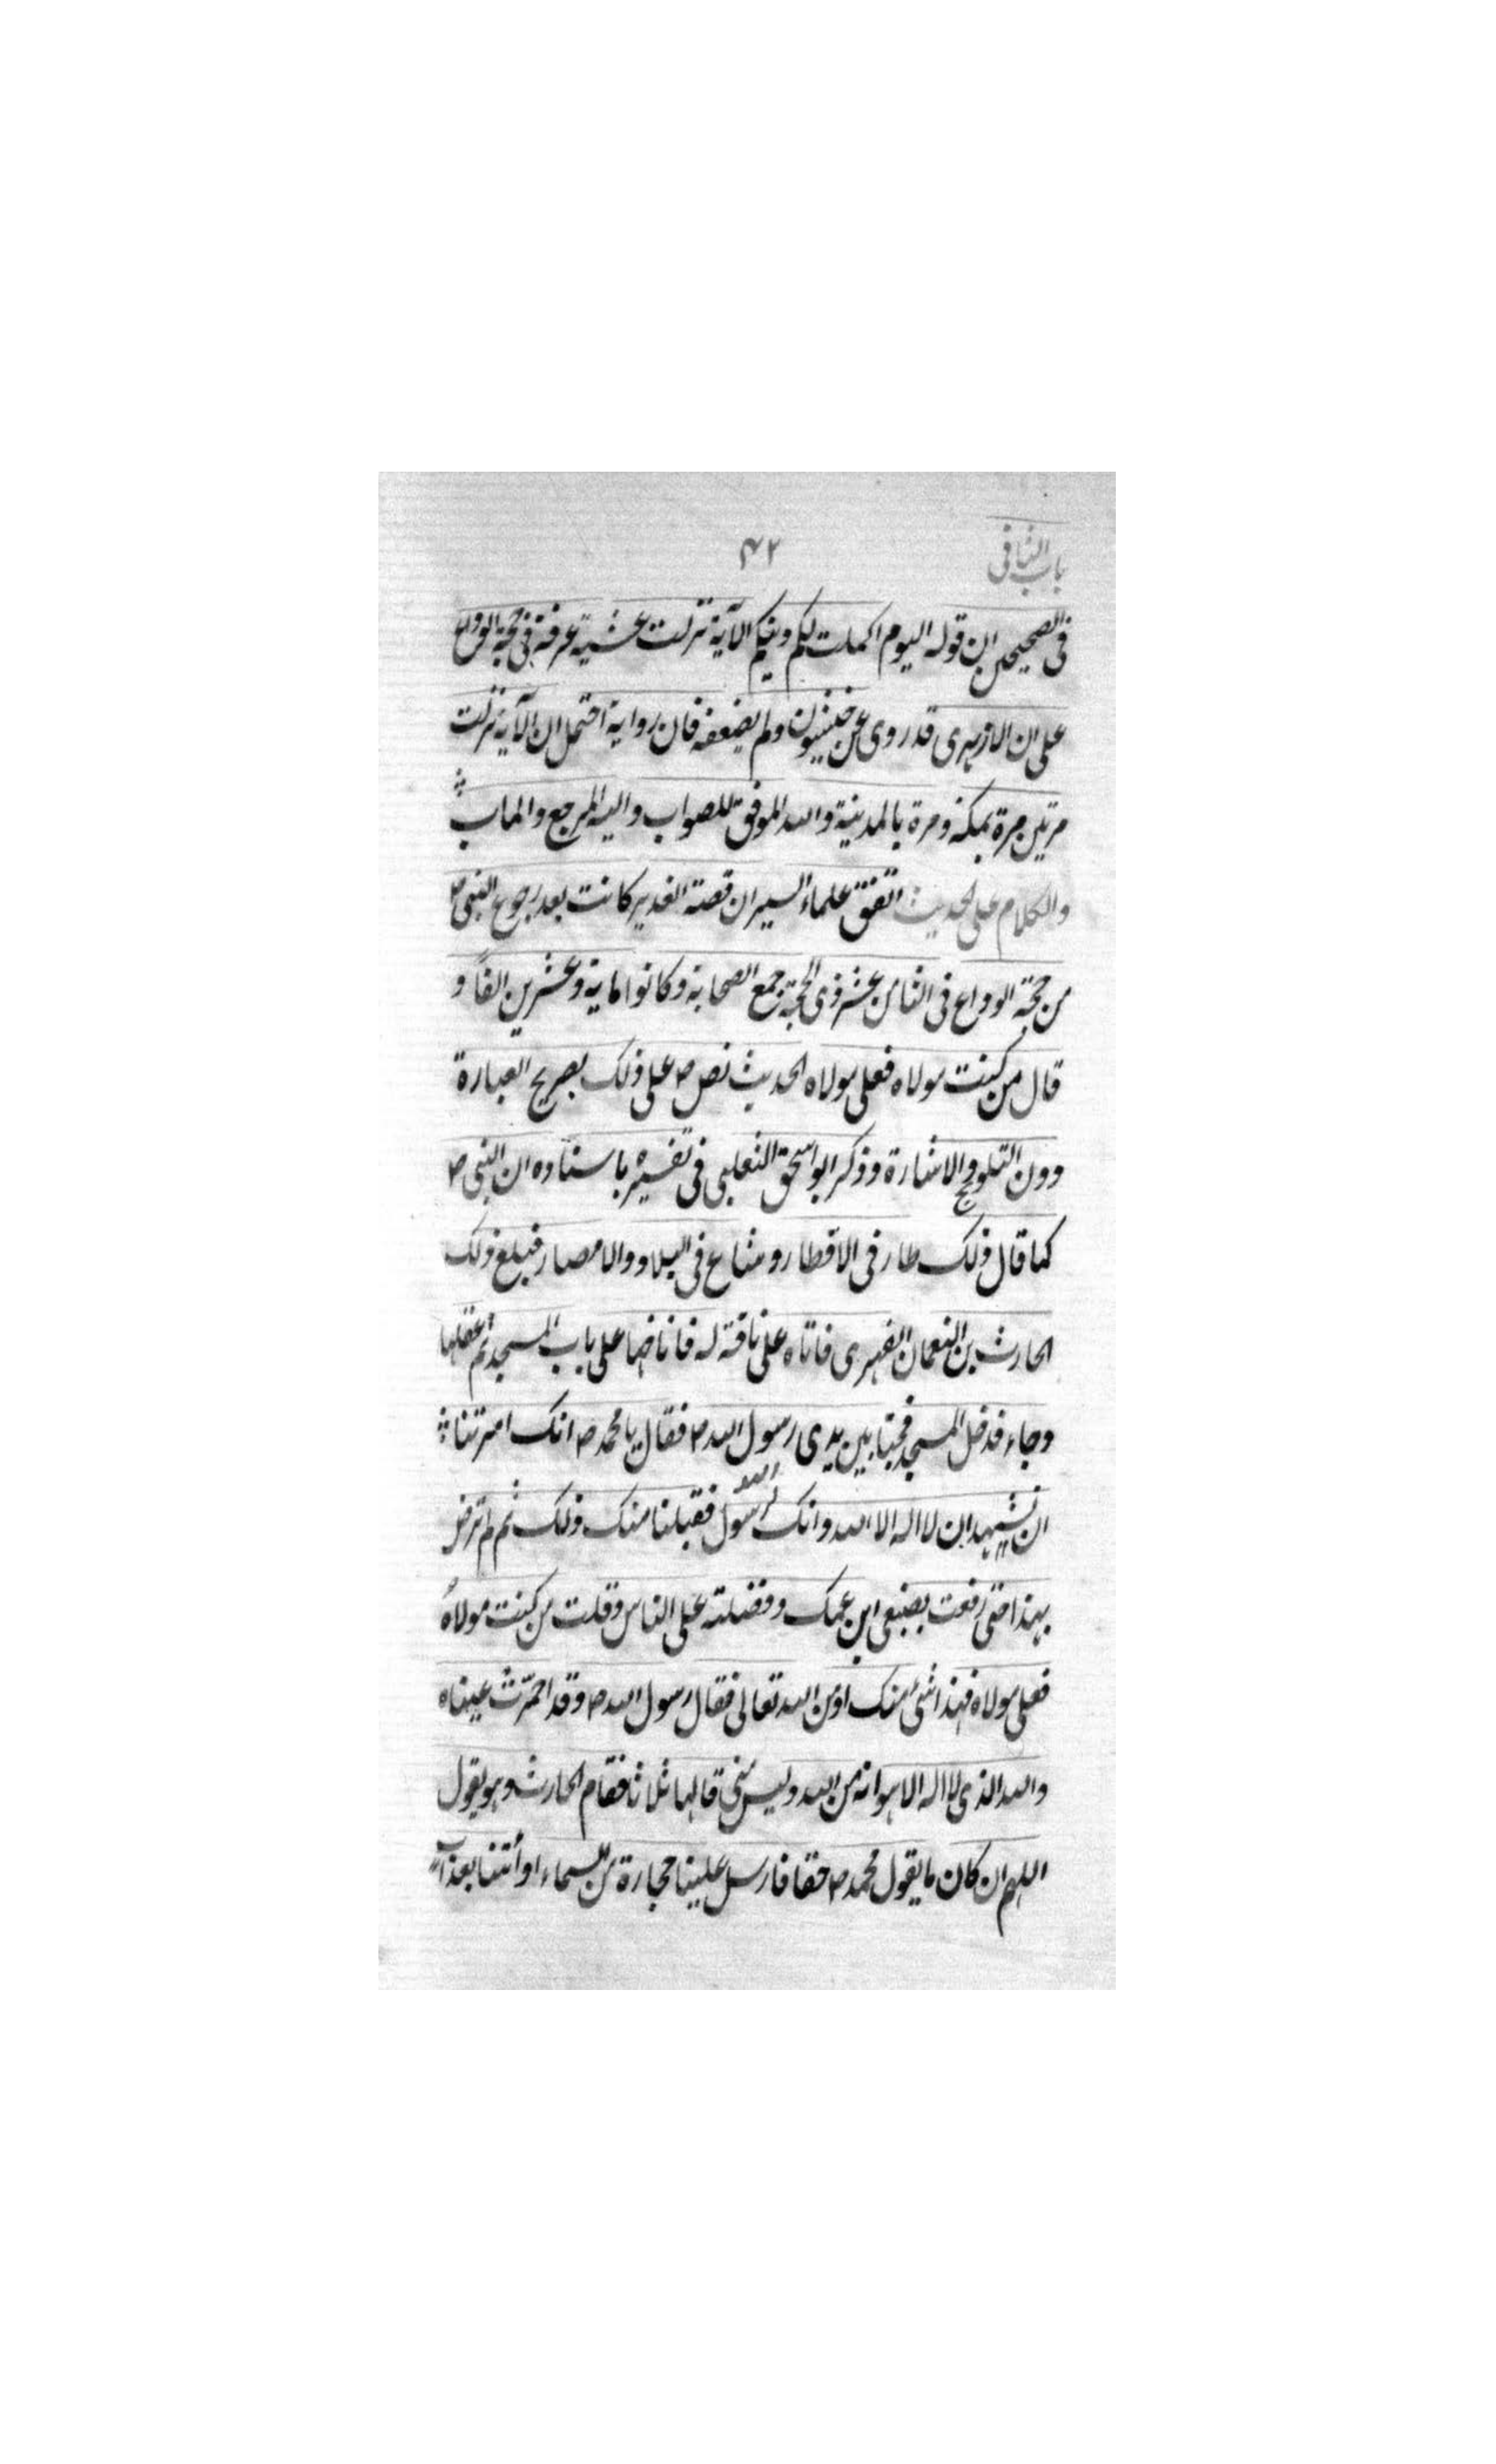 باب الثانی
۴۲
فی الصحیحین ان قوله الیوم اکملت لکم دینکم الآیة نزلت عشیة عرفة فی حجة الوداع
علی ان الازہری قد روی عن ولم یضعفه فان روایة احتمل ان الآیة نزلت
مرتین مرة بمکة ومرة بالمدینة والله الموفق للصواب والیه المرجع والماب
والکلام علی الحدیث اتفق علماء السیر ان قصة الغدیر کانت بعد رجوع النبی ص
من حجة الوداع فی الثامن عشر ذی الحجة جمع الصحابة وکانوا مایة وعشرین الفاً و
قال من کنت مولاه فعلی مولاه الحدیث نص ص علی ذلک بصریح العبارة
دون التلویح والاشارة وذکر ابو اسحق الثعلبی فی تفسیره باسناده ان النبی ص
کما قال ذلک طار فی الاقطار وشاع فی البلاد والامصار فبلغ ذلک
الحارث بن النعمان الفہری فاتاه علی ناقة له فاناخہا علی باب المسجد ثم عقلہا
وجاء فدخل المسجد فجثا بین یدی رسول الله ص فقال یا محمد ص انک امرتنا
ان نشہد ان لا اله الا الله وانک رسول الله فقبلنا منک ذلک ثم لم ترض
بہذا حتی رفعت بضبعی ابن عمک وفضلته علی الناس وقلت من کنت مولاهُ
فعلی مولاه فہذا شئ منک او من الله تعالی فقال رسول الله ص وقد احمرّت عیناه
والله الذی لا اله الا ہو انه من الله ولیس منی قالہا ثلاثا فقام الحارث وہو یقول
اللہم ان کان ما یقول محمد ص حقا فارسل علینا حجارة من السماء او أتنا بعذاب